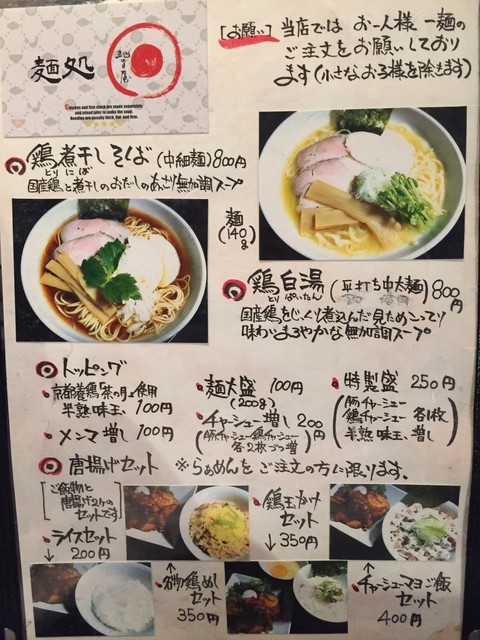 麺処
Chicken and fish stock are made separately
and mixed later to make the soup.
Noodles are mostly thick, flat and firm.
[お願い] 当店では お一人様 一麺の
ご注文をお願いしており
ます(小さなお子様を除きます)
鶏煮干しそば (中細麺) 800円
とりにぼ
国産鶏と煮干しのおだしのあっさり無加調スープ
麺
(140g)
鶏白湯 (平打ち中太麺) 800円
とりぱいたん
国産鶏をじっくり煮込んだ見ためこってり
味わいまろやかな無加調スープ
トッピング
京都養鶏 茶の月玉使用
半熟味玉 100円
メンマ増し 100円
麺大盛 100円
(200g)
チャーシュー増し 200円
(豚チャーシュー鶏チャーシュー
各2枚づつ増)
特製盛 250円
(豚チャーシュー
鶏チャーシュー 各1枚
半熟味玉 増し)
唐揚げセット ※らぁめんをご注文の方に限ります。
[ご飯物と
唐揚げ2ケの
セットです]
ライスセット
↓ 200円
鶏玉かけ
セット
↓350円
↑
名物鶏めし
セット
350円
↑
チャーシューマヨご飯
セット
400円